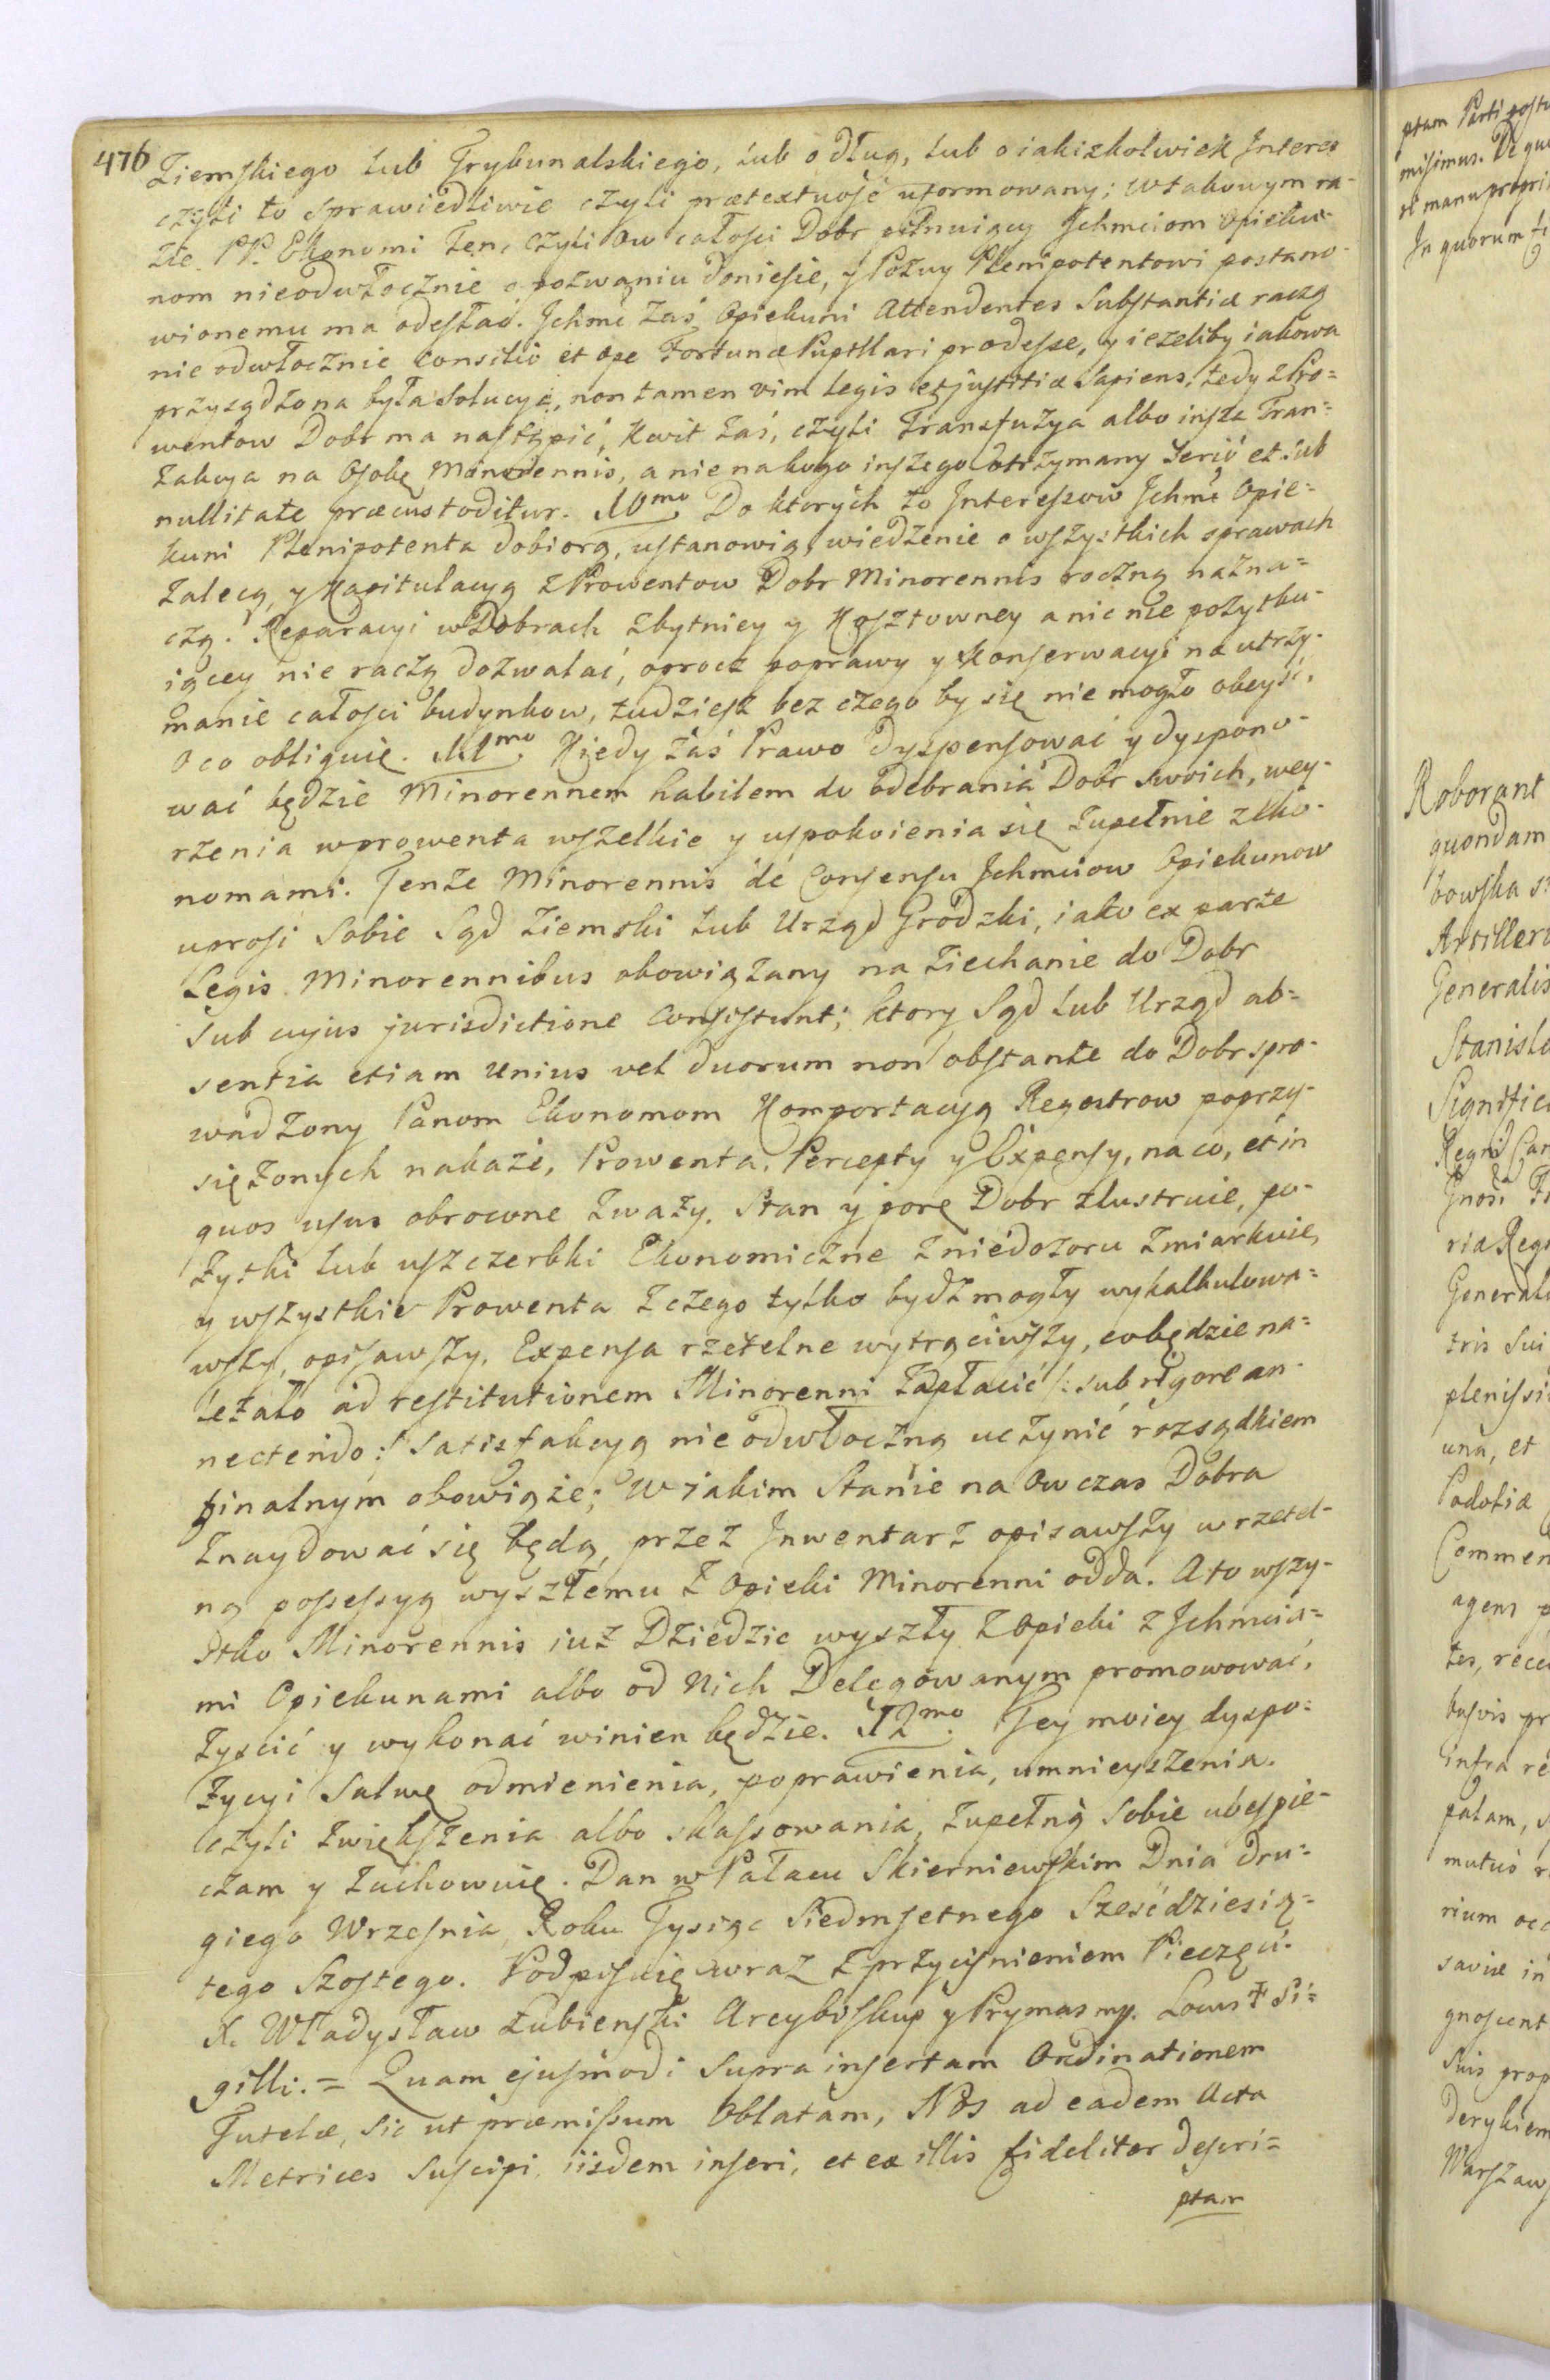 476
Ziemskiego lub Trybunalskiego, lub o dług, lub o iakizkolwiek Interes
czyli to sprawiedliwie czyli prætextuosé uformowany; w takowym ra-
zie PP. Ekonomi ten, czyli ow całości Dobr pilnuiący Jchmciom Opieku-
nom nieodwłocznie o pozwaniu doniesie, y Pozwy Plenipotentowi postano-
wionemu ma odesłać. Jchmć zaś Opiekuni Attendentes Substantiæ raczą
nieodwłocznie consilio et ope Fortunæ Pupillari prodesse, y ieżeliby iakowa
przysądzona była Solucya, non tamen vim legis et justitiæ sapiens, tedy z Pro=
wentow Dobr ma nastąpić, Kwit zaś, czyli Transfuzya albo insza Tran=
zakcya na Osobę Minorennis, a nie na kogo inszego otrzymany Serio et sub
nullitate præcustoditur. 10mo Do ktorych to Interessow Jchmć Opie=
kuni Plenipotenta dobiorą, ustanowią, wiedzenie o wszystkich sprawach
zalecą, y Kapitulacyą z Prowentow Dobr Minorennis roczną nazna=
czą. Reparacyi w Dobrach zbytniey y Kosztowney a nic nie pożytku-
iącey nie raczą dozwalać, oprocz poprawy y konserwacyi na utrzy-
manie całości budynkow, tudziesz bez czego by się nie mogło obeyść,
o co obliguię. 11mo Kiedy zaś Prawo dyspensować y dyspono-
wać będzie Minorennem habilem do odebrania Dobr swoich, wey-
rzenia w prowenta wszelkie y uspokoienia się zupełnie z Eko-
nomami. Tenże Minorennis de Consensu Jchmciow Opiekunow
uprosi sobie Sąd Ziemski lub Urząd Grodzki, iako ex parte
Legis Minorennibus obowiązany na ziechanie do Dobr
sub cujus jurisdictione consistunt; ktory Sąd lub Urząd ab=
sentia etiam unius vel duorum non obstante do Dobr spro-
wadzony Panom Ekonomom Komportacyą Regestrow poprzy-
siężonych nakaże, Prowenta, Percepty y Expensy, na co, et in
quos usus obrocone zważy. Stan y porę Dobr zlustruie, po-
żytki lub uszczerbki Ekonomiczne z niedozoru zmiarkuie,
y wszystkie Prowenta z czego tylko bydź mogły wykalkulowa=
wszy, opisawszy, Expensa rzetelne wytrąciwszy, co będzie na=
leżało ad restitutionem Minorenni zapłacić /: sub rigore an-
nectendo :/ Satisfakcyą nieodwłoczną uczynić rozsądkiem
finalnym obowiąże; W iakim Stanie na owczas Dobra
znaydować się będą, przez Inwentarz opisawszy w rzetel-
ną possessyą wyszłemu z Opieki Minorenni odda. A to wszy-
stko Minorennis iuż Dziedzic wyszły z Opieki z Jchmcia=
mi Opiekunami albo od Nich Delegowanym promowować,
ziścić y wykonać winien będzie. 12mo Tey moiey dyspo=
zycyi Salwę odmienienia, poprawienia, umnieyszenia.
czyli zwiększenia albo skassowania, zupełną sobie ubespie-
czam y zachowuię. Dan w Pałacu Skierniewskim Dnia dru=
giego Września, Roku Tysiąc Siedmsetnego Sześćdziesią=
tego Szostego. Podpisuię wraz z przyciśnieniem Pieczęci.
X. Władysław Łubieński Arcybiskup y Prymas mp. Locus ┼ Si=
gilli. = Quam ejusmodi supra insertam Ordinationem
Tutelæ, sic ut præmissum Oblatam, Nos ad eadem Acta
Metrices suscipi, iisdem inseri, et ex illis fideliter descri=
ptam
ptam Parti postu
misimus. De quo
et manu propri
In quorum fi
Roborant
quondam
bowska s
Artilleri
Generalis
Stanisla
Significa
Regni Can
ria Regn
Generali
tris Sui
plenissi
una, et
Podoliæ
Commen
agens p
tes, rece
busvis pr
infra re
palam, s
mutuo r
rium occ
saviæ in
gnoscent
Suis prop
derykiem
Warszaws